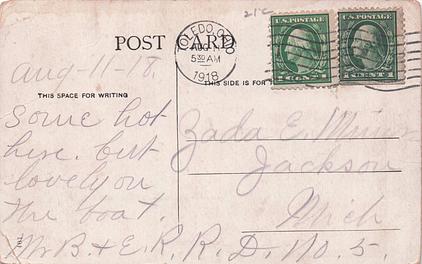 21¢
POST CARD
TOLEDO, OHIO
AUG
5 30 AM
1918
U.S. POSTAGE
1 CENT 1
U.S. POSTAGE
1 CENT 1
Aug-11-18.
THIS SPACE FOR WRITING
THIS SIDE IS FOR
Some hot
here. but
lovely on
the boat.
Mr B. + E.
Zada E.
Jackson
Mich
R. R. D. No. 5.